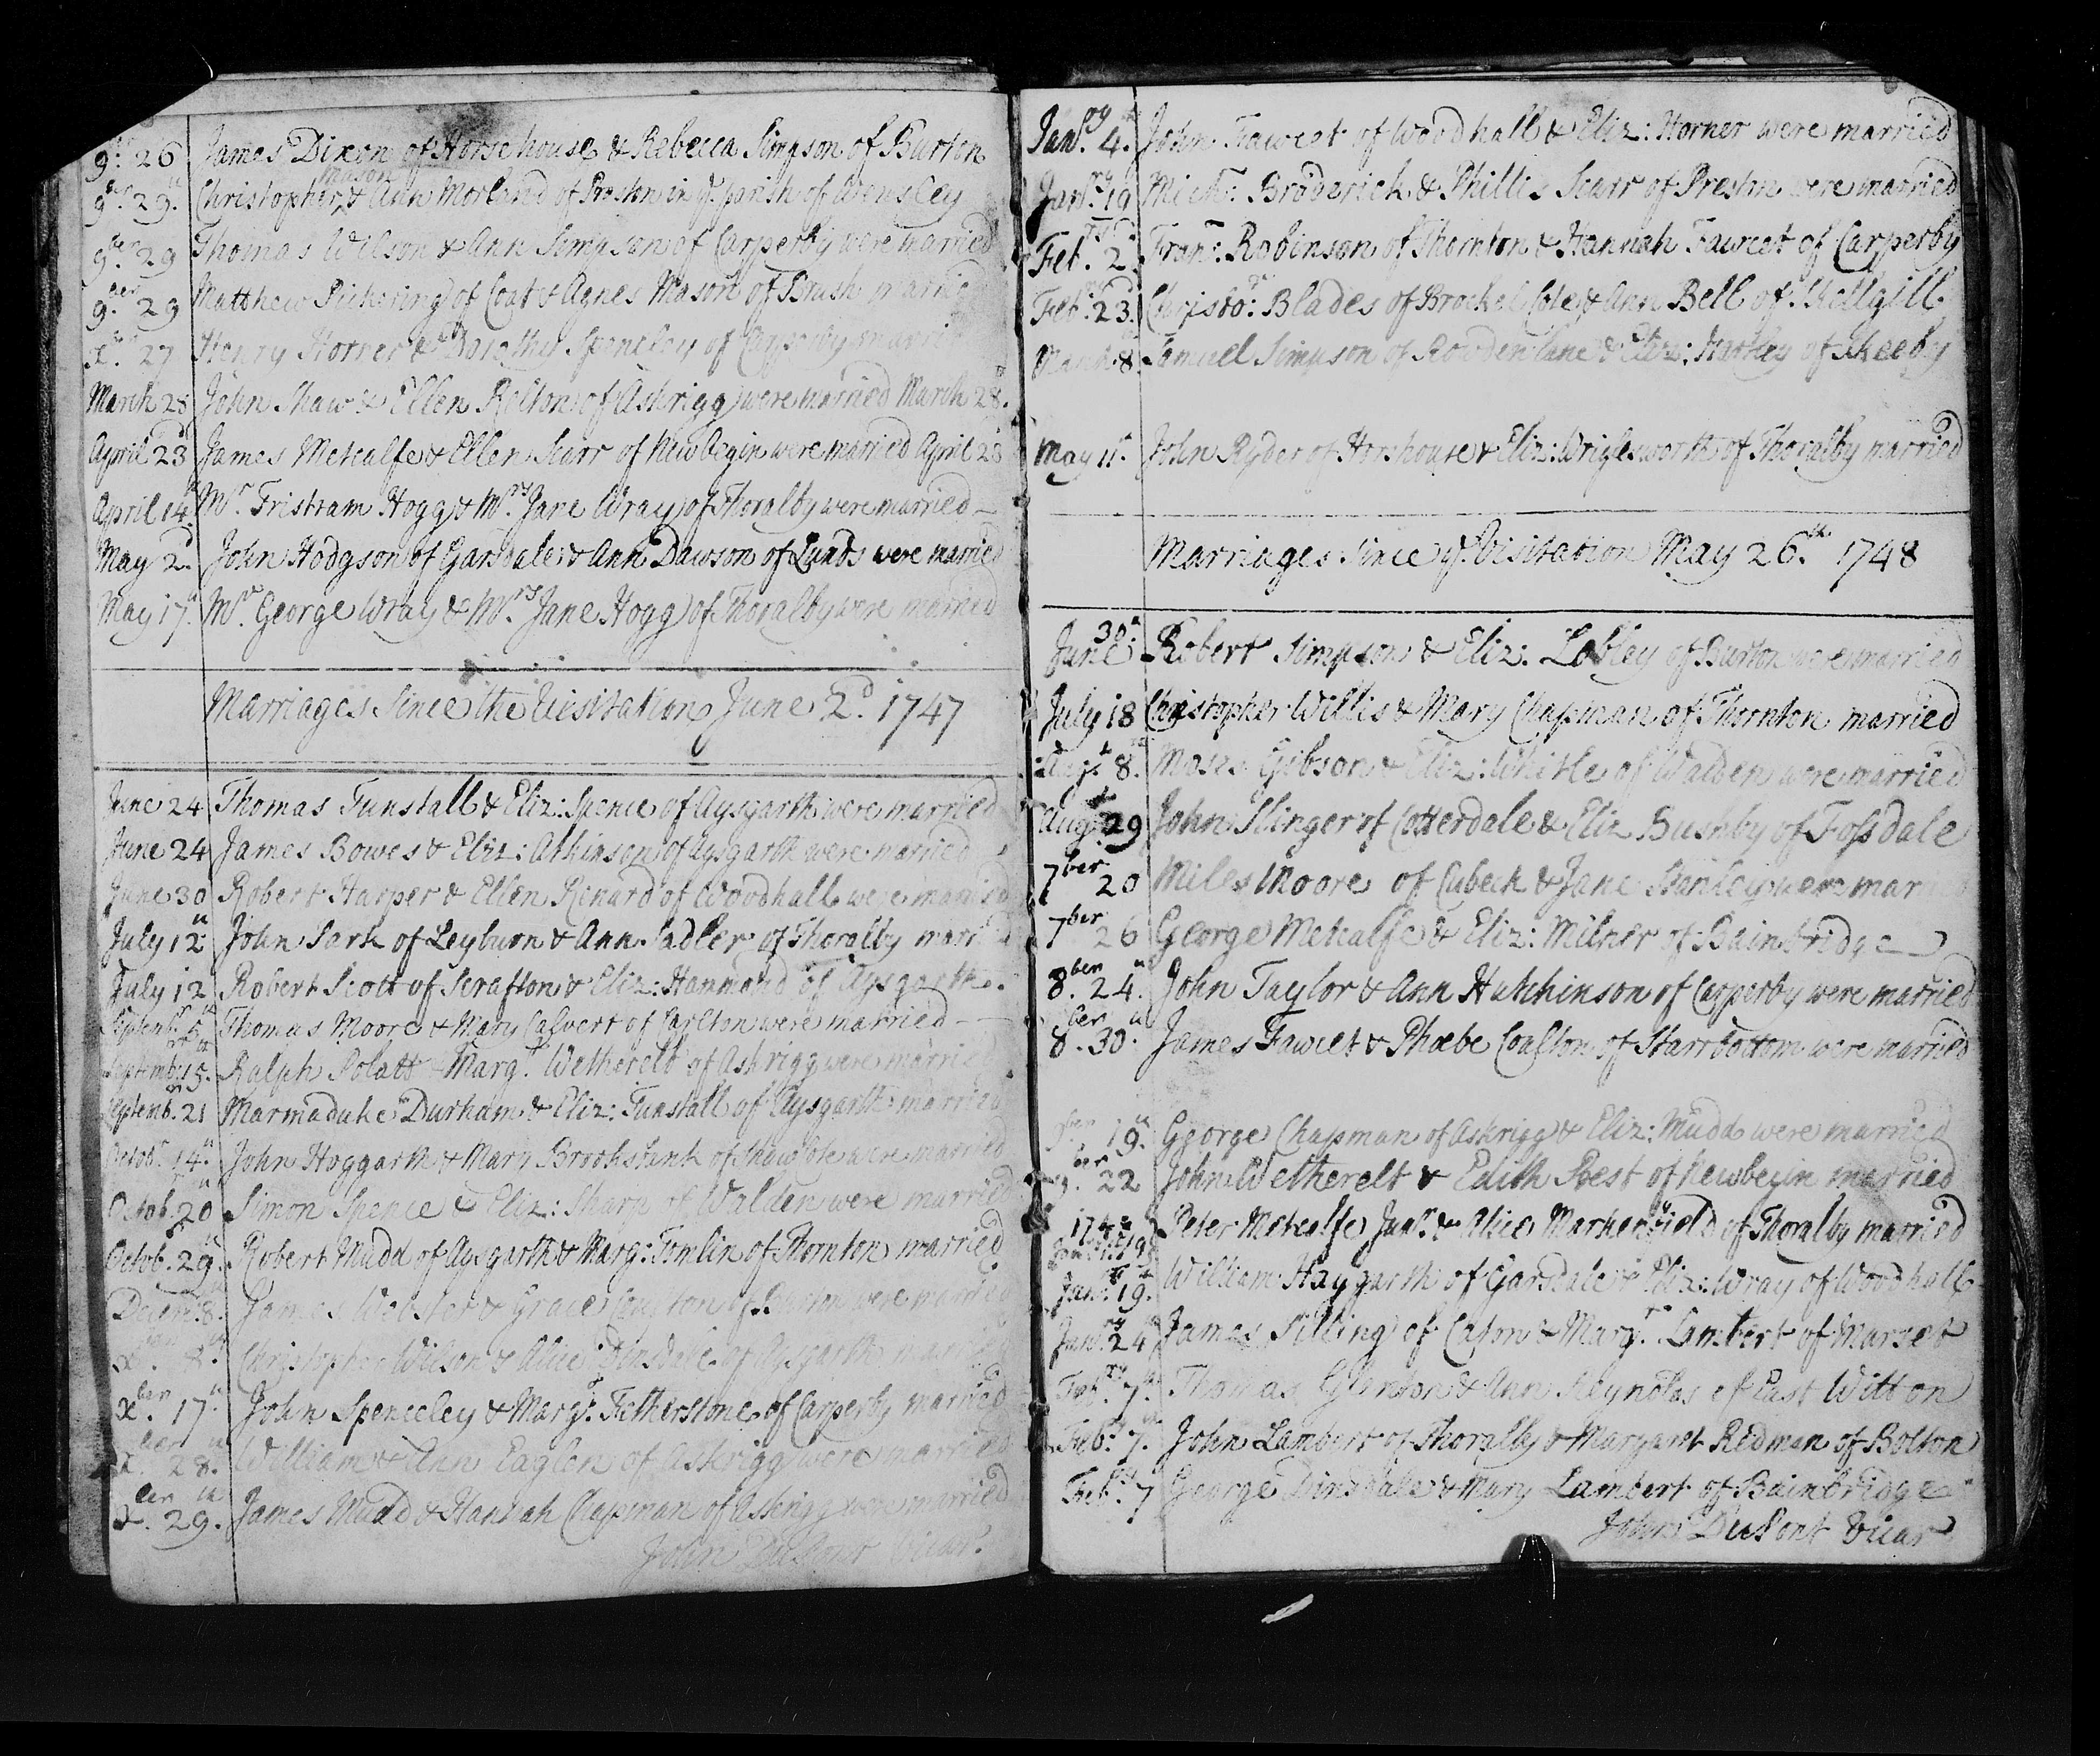 9br 26 James Dixon of Horsehouse & Rebecca Simpson of Burton
mason
9br 29th Christopher & Ann Morland of Preston in ye parish of Wensley
9ber 29 Thomas Wilson & Ann Simpson of Carperby were married
9ber 29 Matthew Pickering of Coat & Agnes Mason of Brush married
xbr 27 Henry Horner & Dorothy Spenceley of Carperby married
March 28 John Shaw & Ellen Relton of Askrigg were married March 28th
April 23d James Metcalfe & Ellen Scarr of Newbegin were married April 23
April 14th Mr. Tristram Hogg & Mrs. Jane Wray of Thoralby were married
May 2d. John Hodgson of Garsdale & Ann Dawson of Lunds were married
May 17th Mr. George Wray & Mrs. Jane Hogg of Thoralby were married
Marriages Since the Visitation June 2d. 1747
June 24 Thomas Tunstall & Eliz: Spence of Aysgarth were married
June 24 James Bowes & Eliz: Atkinson of Aysgarth were married
June 30 Robert Harper & Ellen Renard of Woodhall were married
July 12th John Sark of Leyburn & Ann Sadler of Thoralby married
July 12 Robert Scott of Scrafton & Eliz: Hammond of Aysgarth
Septembr 5th Thomas Moore & Mary Calvert of Carlton were married
Septembr 15th Ralph Polatt & Margt Wetherelt of Askrigg were married
Septembr 21 Marmaduke Durham & Eliz: Tunstall of Aysgarth married
Octobr 14th John Hoggarth & Mary Brooksbank of Shaw Cote were married
Octob. 20th Simon Spence & Eliz: Sharp of Walden were married
Octob. 29th Robert Mudd of Aysgarth & Marg: Tomlin of Thornton married
Decem 8th James Webster & Grace of Burton were married
xber 8th Christopher Wilson & Alice Dinsdale of Aysgarth married
xber 17th John Spenceley & Margt. Fetherstone of Carperby married
xber 28th William & Ann Eaglen of Askrigg were married
xber 29th James Mudd & Hannah Chapman of Askrigg were married
John DuPont Vicar
Janry 4th John Fawcet of Woodhall & Eliz: Horner were married
Janry 19 Michl: Broderick & Phillis Scarr of Preston were married
Febry 2d Frans: Robinson of Thornton & Hannah Fawcet of Carperby
Febry 23 Christor: Blades of Brocket Cote & Ann Bell of Skellgill
March 8th Samuell Simpson of Rowden Lane & Eliz: Hartley of Skeeby
May 11th John Ryder of Horshouse & Eliz: Wriglesworth of Thoralby married
Marriages Since ye Visitation May 26th 1748
June 30th Robert Simpson & Eliz: Lobley of Burton were married
July 18 Christopher Willis & Mary Chapman of Thornton married
Augt 8th Moses Gibson & Eliz: Whitle of Walden were married
Augt 29 John Slinger of Cotterdale & Eliz Bushby of Fossdale
7ber 20 Miles Moore of Cubeck & Jane Stanley were mar
7ber 26 George Metcalfe & Eliz: Milner of Bainbridge
8ber 24th John Taylor & Ann Hutchinson of Carperby were married
8ber 30th James Fawcet & Phœbe Coulton of Starrbottom were married
9ber 19th George Chapman of Askrigg & Eliz: Mudd were married
9ber 22 John Wetherelt & Edith Best of Newbegin married
Peter Metcalfe Junr. & Alice Markenfield of Thoralby married
Janry 19th William Haygarth of Garsdale & Eliz: Wray of Woodhall
Janry 24 James Pilling of Caton & Margt. Lambert of Marset
Febry 7th Thomas Glenton & Ann Reynolds of East Witton
Febry 7th John Lambert of Thoralby & Margaret Redman of Bolton
Febry 7 George Dinsdale & Mary Lambert of Bainbridge
John DuPont Vicar